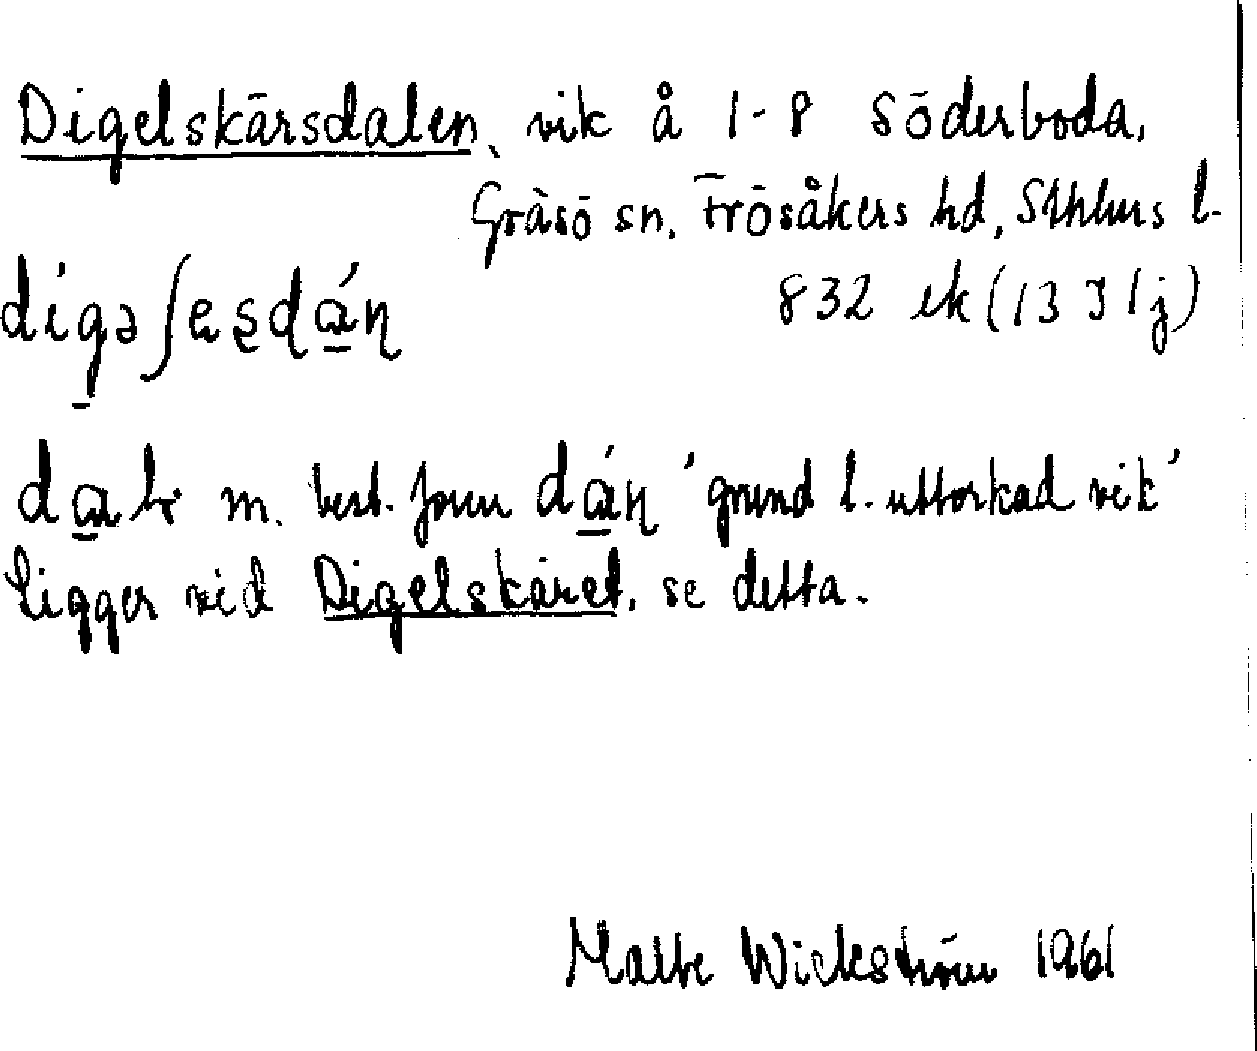 Digelskärsdalen, vik å 1-8 Söderboda,
Gräsö sn, Frösåkers hd, Sthlms l.
832 ek (13 I 1j)
digəʃæsdán
dal m. best. form dán 'grund l. uttorkad vik'
Ligger vid Digelskäret, se detta.
Malte Wickström 1961